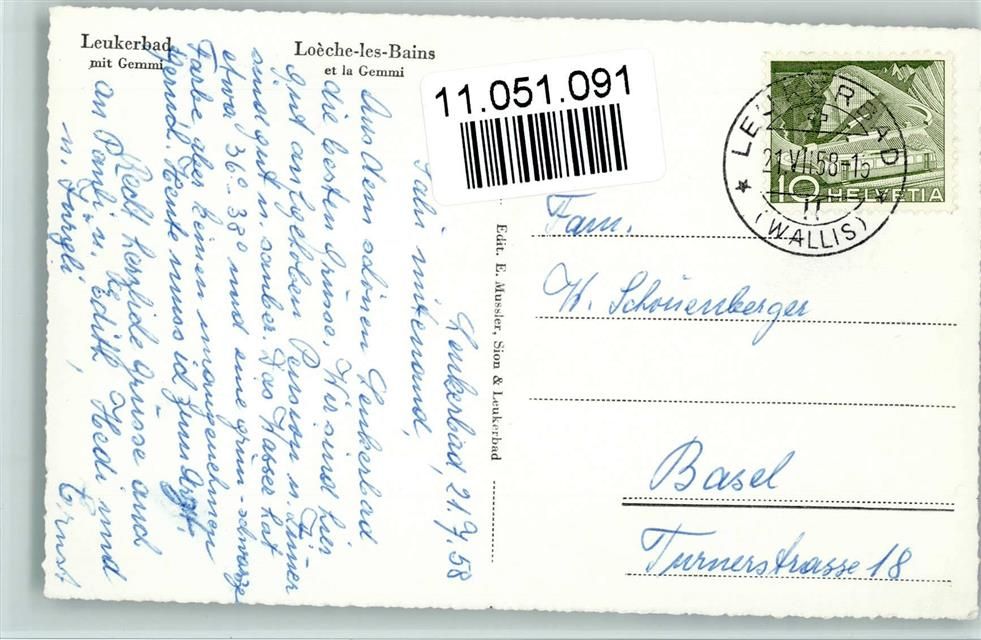 Leukerbad
mit Gemmi
Loèche-les-Bains
et la Gemmi
11.051.091
LEUKERBAD
21.VII.58-15
(WALLIS)
10 HELVETIA
Edit. E. Mussler, Sion & Leukerbad
Leukerbad, 21.7.58
Salü mitenand,
Aus dem schönen Leukerbad
die besten Grüsse. Wir sind hier
gut aufgehoben Pension u. Zimmer
sind gut u. sauber. Das Wasser hat
etwa 36°-38° und eine grün-schwarze
Farbe, aber keinen unangenehmen
Heute muss ich zum Arzt.
Recht herzliche Grüsse auch
an Pauli u. Edith, Hedi und
u. Jürgeli,
Ernst
Fam.
W. Schönenberger
Basel
Turnerstrasse 18